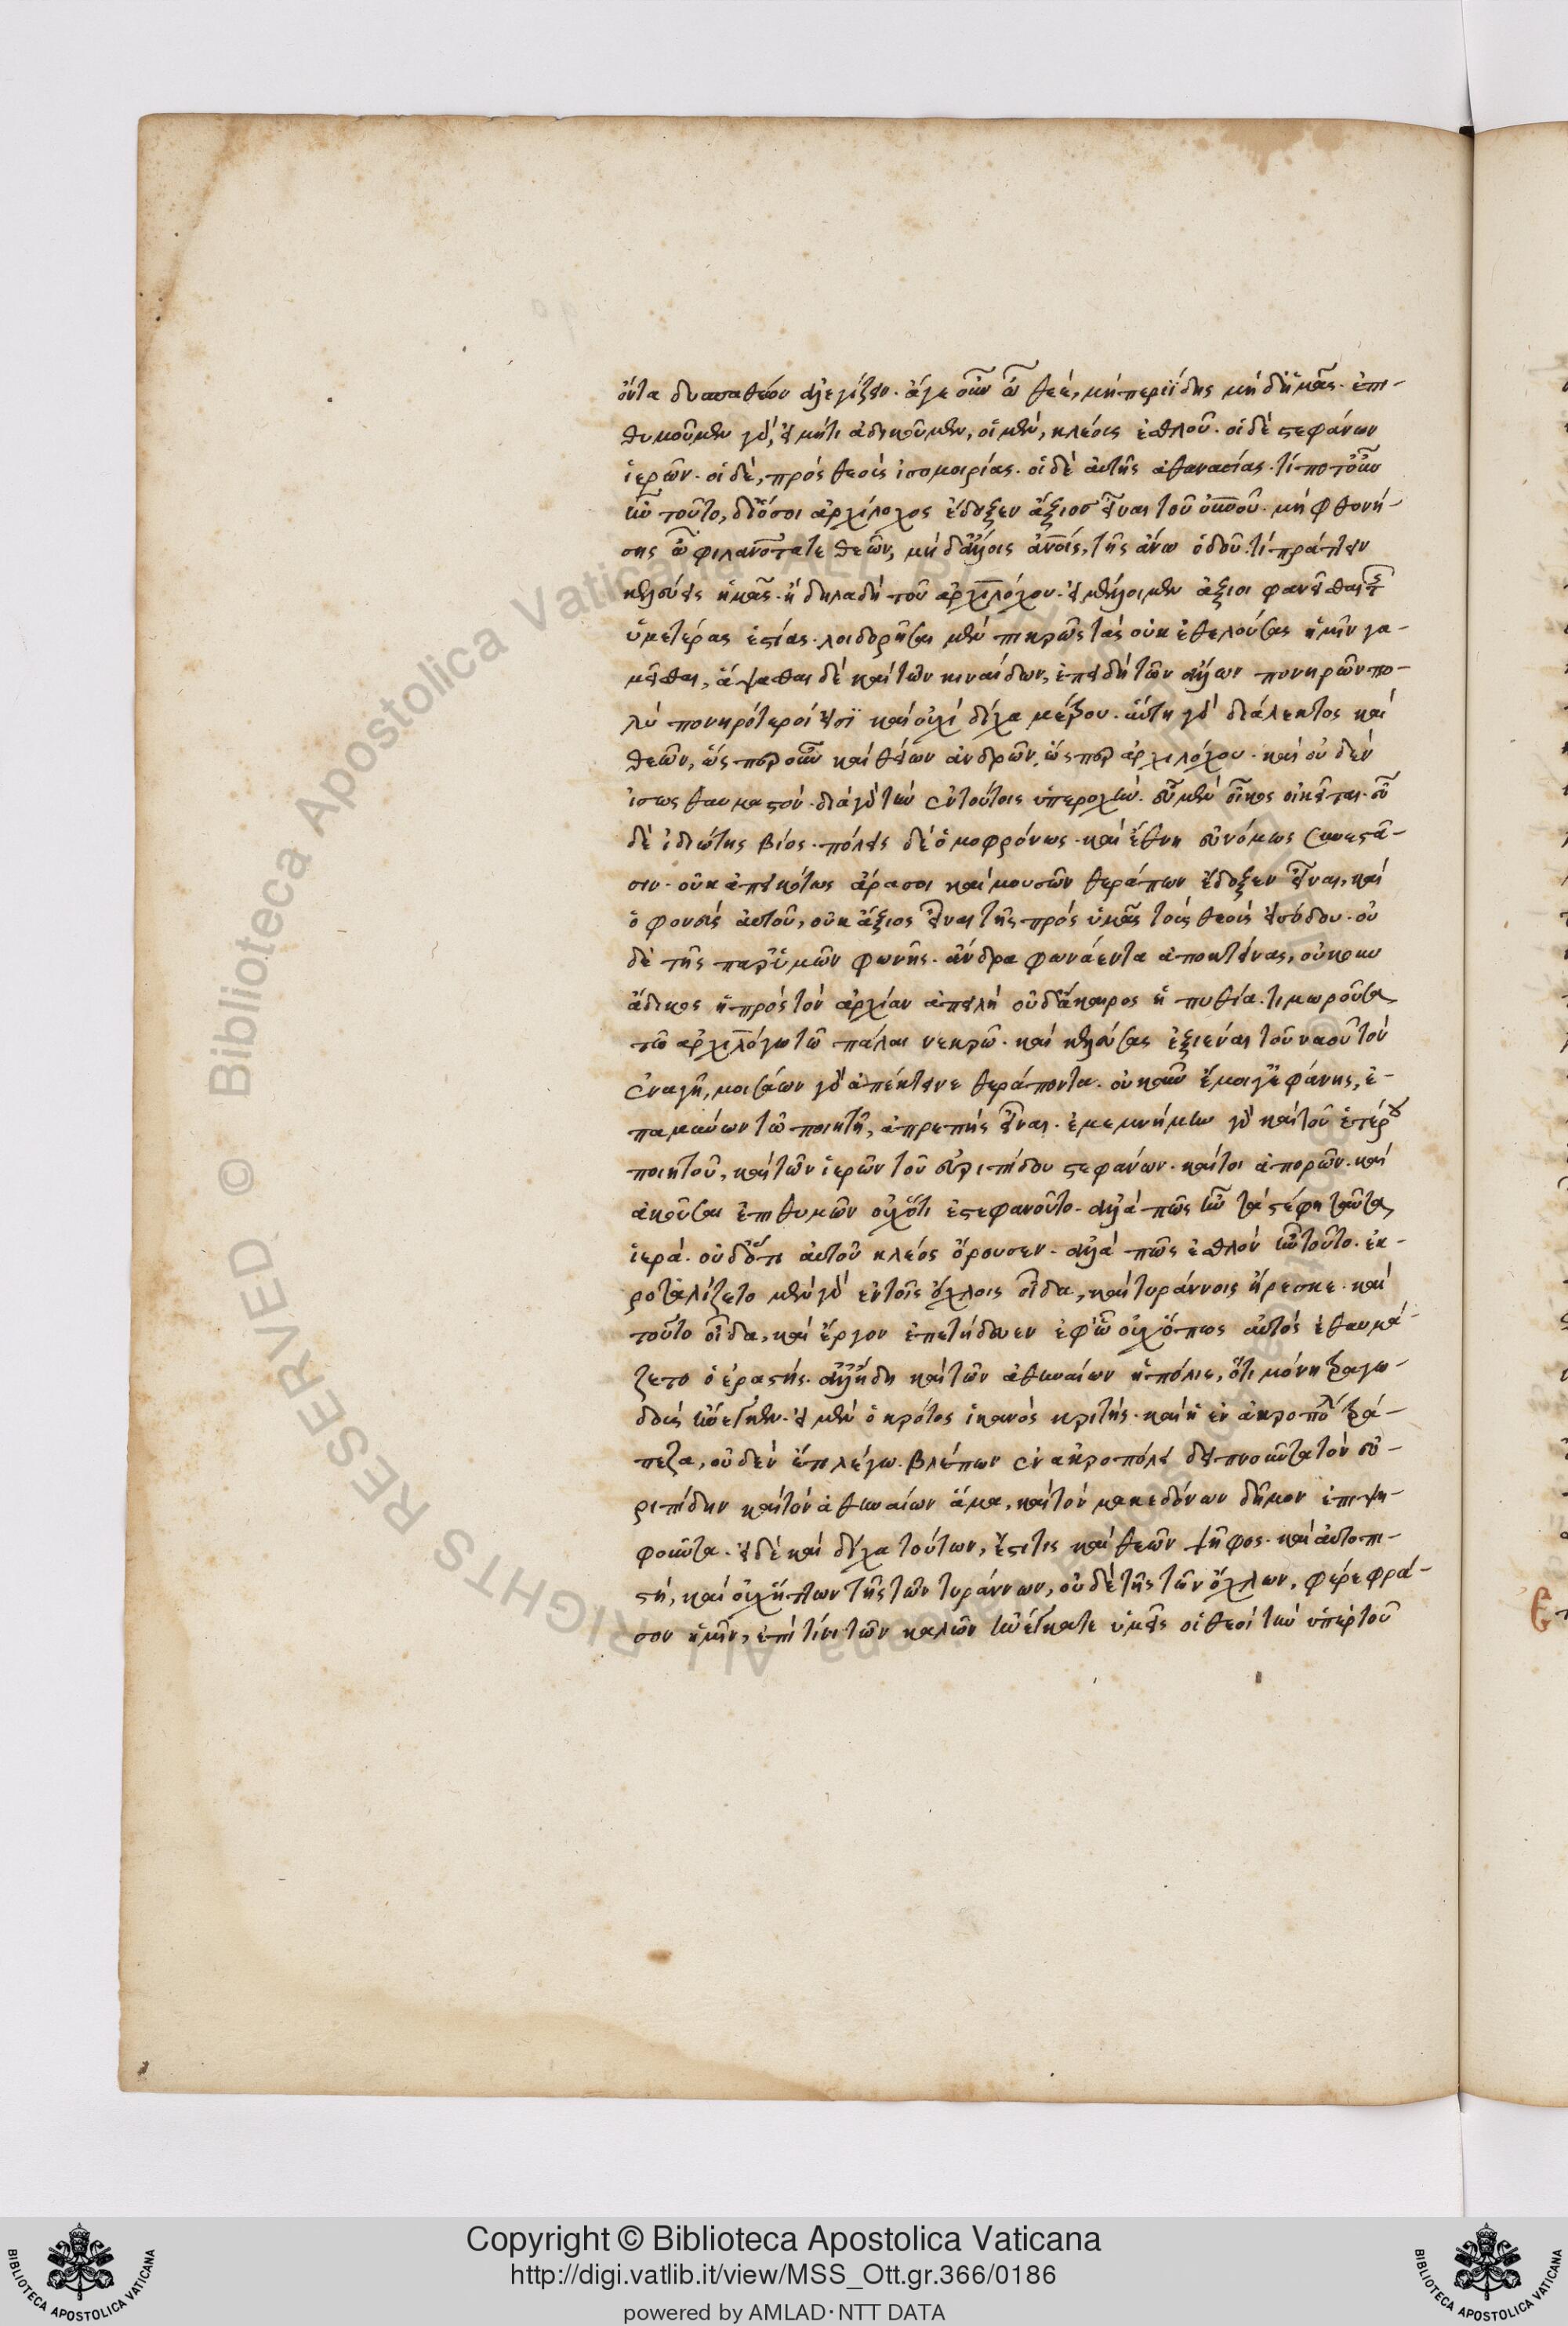 ὄντα δυσπαθέον ἀλεγίζειν. ἄγε οὖν ὦ θεέ, μὴ περιίδῃς μηδ' ἡμᾶς. ἐπι-
θυμοῦμεν γὰρ, εἰ μή τι ἀδικοῦμεν, οἱ μὲν, κλέους ἐσθλοῦ. οἱ δὲ στεφάνων
ἱερῶν. οἱ δὲ, πρὸς θεοὺς ἰσομοιρίας. οἱ δὲ αὐτῆς ἀθανασίας. τί ποτ' οὖν
ἦν τοῦτο, δι' ὅ σοι ἀρχίλοχος ἔδοξεν ἄξιος εἶναι τοῦ οὐρανοῦ. μὴ φθονή-
σῃς ὦ φιλανθρωπότατε θεῶν, μηδ' ἄλλοις ἀνθρώποις, τῆς ἄνω ὁδοῦ. τί πράττειν
κελεύεις ἡμᾶς. ἢ δηλαδὴ τοῦ ἀρχιλόχου. εἰ μέλλοιμεν ἄξιοι φανεῖσθαι τῆς
ὑμετέρας ἑστίας. λοιδορῆσαι μὲν πικρῶς τὰς οὐκ ἐθελούσας ἡμῖν γα-
μεῖσθαι, ἅψασθαι δὲ καὶ τῶν κιναίδων, ἐπειδὴ τῶν ἄλλων πονηρῶν πο-
λὺ πονηρότεροί εἰσϊ καὶ οὐχὶ δίχα μέτρου. αὕτη γὰρ διάλεκτος καὶ
θεῶν, ὥσπερ οὖν καὶ θείων ἀνδρῶν, ὥσπερ ἀρχιλόχου. καὶ οὐδὲν
ἴσως θαυμαστόν. διὰ γὰρ τὴν ἐν τούτοις ὑπεροχὴν. εὖ μὲν οἶκος οἰκεῖται. εὖ
δὲ ἰδιώτης βίος. πόλεις δὲ ὁμοφρόνως. καὶ ἔθνη εὐνόμως συνεστᾶ-
σιν. οὐκ ἀπεικότως ἄρα σοι καὶ μουσῶν θεράπων ἔδοξεν εἶναι, καὶ
ὁ φονεὺς αὐτοῦ, οὐκ ἄξιος εἶναι τῆς πρὸς ὑμᾶς τοὺς θεοὺς εἰσόδου. οὐ
δὲ τῆς παρ' ὑμῶν φωνῆς. ἄνδρα φωνάεντα ἀποκτείνας, οὔκουν
ἄδικος ἡ πρὸς τὸν ἀρχίαν ἀπειλὴ οὐδ' ἄκαιρος ἡ πυθία. τιμωροῦσα
τῶ ἀρχιλόχω τῶ πάλαι νεκρῶ. καὶ κελεύσας ἐξιέναι τοῦ ναοῦ τὸν
ἐναγῆ, μουσάων γὰρ ἀπέκτεινε θεράποντα. οὔκουν ἔμοιγ' ἐφάνης, ἐ-
παμύνων τῶ ποιητῆ, ἀπρεπὴς εἶναι. ἐμεμνήμην γὰρ καὶ τοῦ ἑτέρου
ποιητοῦ, καὶ τῶν ἱερῶν τοῦ εὐριπίδου στεφάνων. καίτοι ἀπορῶν. καὶ
ἀκοῦσαι ἐπιθυμῶν οὐχ' ὅτι ἐστεφανοῦτο. ἀλλὰ πῶς ἦν τὰ στέφη ταῦτα
ἱερά. οὐδ' ὅτι αὐτοῦ κλέος ὄρουσεν. ἀλλὰ πῶς ἐσθλὸν ἦν τοῦτο. ἐκ-
ροταλίζετο μὲν γὰρ ἐν τοῖς ὄχλοις οἶδα, καὶ τυράννοις ἤρεσκε. καὶ
τοῦτο οἶδα, καὶ ἔργον ἐπετήδευεν ἐφ' ὧ οὐχ' ὅπως αὐτὸς ἐθαυμά-
ζετο ὁ ἐραστής. ἀλλ' ἤδη καὶ τῶν ἀθηναίων ἡ πόλις, ὅτι μόνη τραγω-
δοὺς ἤνεγκεν. εἰ μὲν ὁ κρότος ἱκανὸς κριτής. καὶ ἡ ἐν ἀκροπόλει τρά-
πεζα, οὐδὲν ἔτι λέγω. βλέπων ἐν ἀκροπόλει δειπνοῦντα τὸν εὐ-
ριπίδην καὶ τὸν ἀθηναίων ἅμα, καὶ τὸν μακεδόνων δῆμον ἐπιψη-
φοῦντα. εἰ δὲ καὶ δίχα τούτων, ἔστι τις καὶ θεῶν ψῆφος. καὶ αὐτὸ πι-
στὴ, καὶ οὐχ' ἥττων τῆς τῶν τυράννων, οὐδὲ τῆς τῶν ὄχλων, φέρε φρά-
σον ἡμῖν, ἐπὶ τίνι τῶν καλῶν ἠνέγκατε ὑμεῖς οἱ θεοὶ τὴν ὑπὲρ τοῦ
© Biblioteca Apostolica Vaticana ALL RIGHTS RESERVED
Copyright © Biblioteca Apostolica Vaticana
http://digi.vatlib.it/view/MSS_Ott.gr.366/0186
powered by AMLAD·NTT DATA
BIBLIOTECA APOSTOLICA VATICANA
BIBLIOTECA APOSTOLICA VATICANA